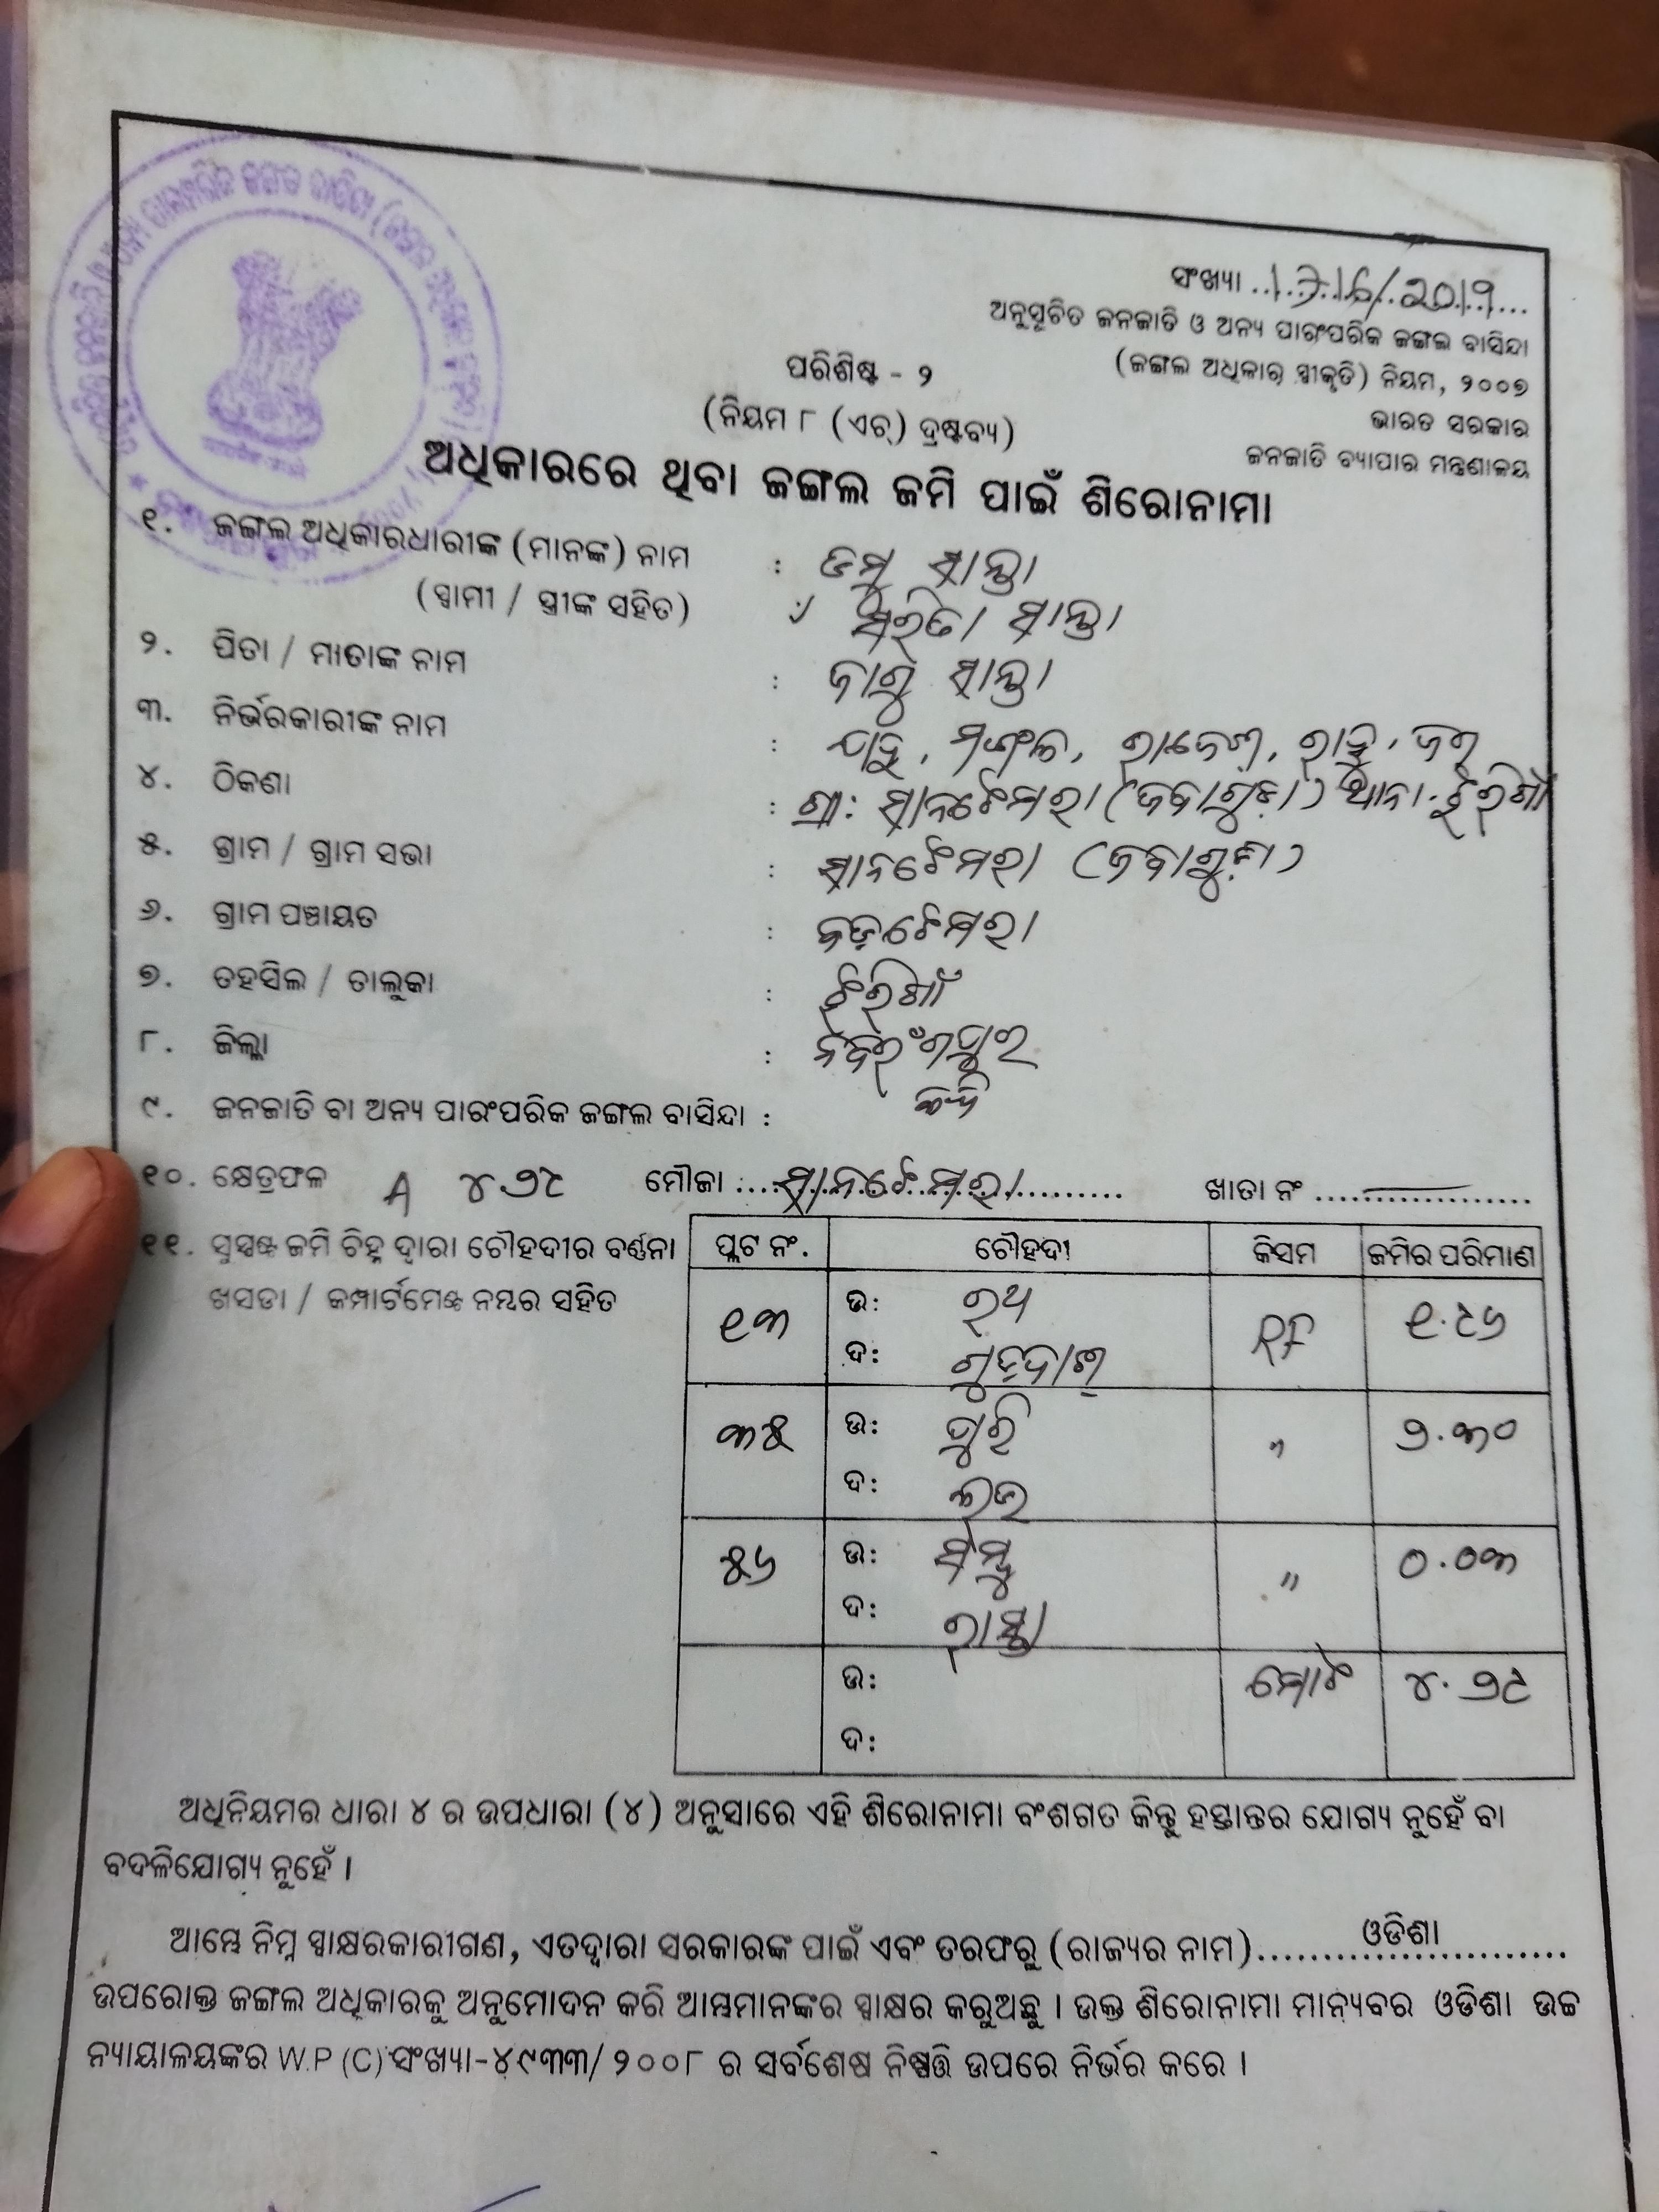 ସଂଖ୍ୟା
ଅନୁସୂଚିତ ଜନଜାତି ଓ ଅନ୍ୟ ପାରଂପରିକ ଜଙ୍ଗଲ ବାସିନ୍ଦା
(ଜଙ୍ଗଲ ଅଧିକାର ସ୍ୱୀକୃତି) ନିୟମ, ୨୦୦୭
ଭାରତ ସରକାର
ଜନଜାତି ବ୍ୟାପାର ମନ୍ତ୍ରଣାଳୟ
ପରିଶିଷ୍ଟ - ୨
(ନିୟମ ୮ (ଏଚ୍) ଦ୍ରଷ୍ଟବ୍ୟ)
ଅଧିକାରରେ ଥିବା ଜଙ୍ଗଲ ଜମି ପାଇଁ ଶିରୋନାମା
୧. ଜଙ୍ଗଲ ଅଧିକାରଧାରୀଙ୍କ (ମାନଙ୍କ) ନାମ : ଡମୁ ସାନ୍ତା
(ସ୍ୱାମୀ / ସ୍ତ୍ରୀଙ୍କ ସହିତ) ସରିତା ସାନ୍ତା
୨. ପିତା / ମାତାଙ୍କ ନାମ : ସାନ୍ତା
୩. ନିର୍ଭରକାରୀଙ୍କ ନାମ : ମଙ୍ଗଳ,
୪. ଠିକଣା : ଗ୍ରା: ସାନଟେମରା ଥାନା. ଝରିଗାଁ
୫. ଗ୍ରାମ / ଗ୍ରାମ ସଭା : ସାନଟେମରା
୬. ଗ୍ରାମ ପଞ୍ଚାୟତ : ବଡ଼ଟେମରା
୭. ତହସିଲ / ତାଲୁକା : ଝରିଗାଁ
୮. ଜିଲ୍ଲା : ନବରଂଗପୁର
୯. ଜନଜାତି ବା ଅନ୍ୟ ପାରଂପରିକ ଜଙ୍ଗଲ ବାସିନ୍ଦା :
୧୦. କ୍ଷେତ୍ରଫଳ A ୪.୨୯ ମୌଜା ସାନଟେମରା ଖାତା ନଂ
୧୧. ସୁସ୍ପଷ୍ଟ ଜମି ଚିହ୍ନ ଦ୍ୱାରା ଚୌହଦୀର ବର୍ଣ୍ଣନା
ଖସଡା / କମ୍ପାର୍ଟମେଣ୍ଟ ନମ୍ବର ସହିତ
ପ୍ଲଟ ନଂ. ଚୌହଦୀ କିସମ ଜମିର ପରିମାଣ
୧୩ ଉ: ରଥ RF ୧.୯୬
ଦ:
୩୫ ଉ: ପୁରି " ୨.୩୦
ଦ:
୫୬ ଉ: " ୦.୦୩
ଦ: ରାସ୍ତା
ଉ: ମୋଟ ୪.୨୯
ଦ:
ଅଧିନିୟମର ଧାରା ୪ ର ଉପଧାରା (୪) ଅନୁସାରେ ଏହି ଶିରୋନାମା ବଂଶଗତ କିନ୍ତୁ ହସ୍ତାନ୍ତର ଯୋଗ୍ୟ ନୁହେଁ ବା
ବଦଳିଯୋଗ୍ୟ ନୁହେଁ ।
ଆମ୍ଭେ ନିମ୍ନ ସ୍ୱାକ୍ଷରକାରୀଗଣ, ଏତଦ୍ୱାରା ସରକାରଙ୍କ ପାଇଁ ଏବଂ ତରଫରୁ (ରାଜ୍ୟର ନାମ) ଓଡିଶା
ଉପରୋକ୍ତ ଜଙ୍ଗଲ ଅଧିକାରକୁ ଅନୁମୋଦନ କରି ଆମ୍ଭମାନଙ୍କର ସ୍ୱାକ୍ଷର କରୁଅଛୁ । ଉକ୍ତ ଶିରୋନାମା ମାନ୍ୟବର ଓଡିଶା ଉଚ୍ଚ
ନ୍ୟାୟାଳୟଙ୍କର W.P (C) ସଂଖ୍ୟା-୪୯୩୩/ ୨୦୦୮ ର ସର୍ବଶେଷ ନିଷ୍ପତ୍ତି ଉପରେ ନିର୍ଭର କରେ ।